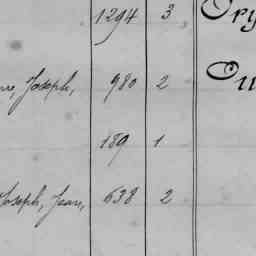 1294 3
Joseph, 980 2
189 1
Joseph, Jean, 638 2